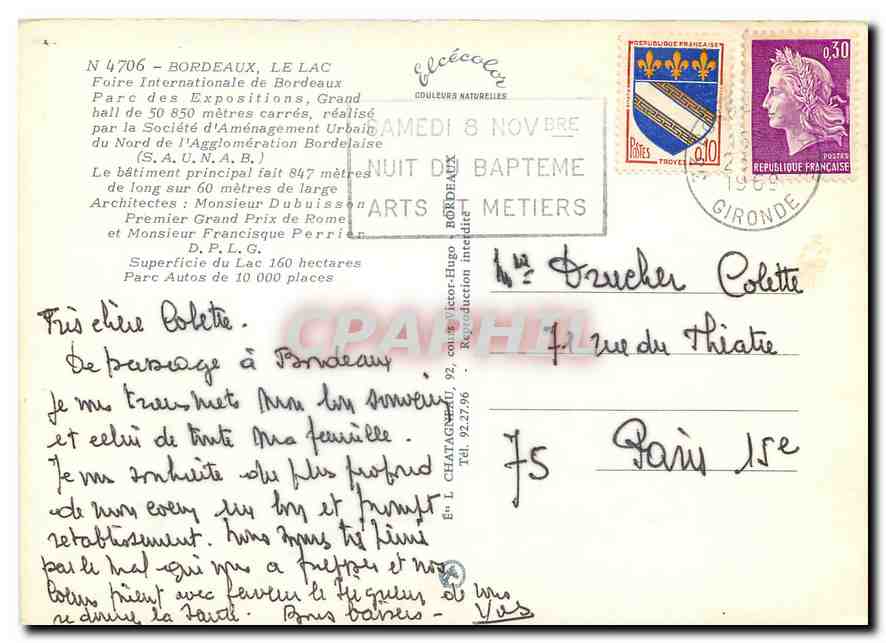 N 4706 – BORDEAUX, LE LAC
Foire Internationale de Bordeaux
Parc des Expositions, Grand
hall de 50 850 mètres carrés, réalisé
par la Société d'Aménagement Urbain
du Nord de l'Agglomération Bordelaise
(S.A.U.N.A.B.)
Le bâtiment principal fait 847 mètres
de long sur 60 mètres de large
Architectes : Monsieur Dubuisson
Premier Grand Prix de Rome
et Monsieur Francisque Perrier
D.P.L.G.
Superficie du Lac 160 hectares
Parc Autos de 10 000 places
Elcécolor
COULEURS NATURELLES
SAMEDI 8 NOVBRE
NUIT DU BAPTEME
ARTS ET METIERS
REPUBLIQUE FRANÇAISE
POSTES
0,10
TROYES
0,30
POSTES
REPUBLIQUE FRANÇAISE
1969
GIRONDE
Ets L. CHATAGNEAU, 92, cours Victor-Hugo - BORDEAUX
Tél. 92.27.96 - Reproduction interdite
CPAPHIL
Mme Drucher Colette
71 rue du Théatre
75 Paris 15e
Très chère Colette.
De passage à Bordeaux
je vous transmets mon bon souvenir
et celui de toute ma famille.
Je vous souhaite du plus profond
de mon coeur un bon et prompt
retablissement. Nous avons très peiné
par le mal qui vous a frappée et nos
coeurs prient avec ferveur le Seigneur de vous
redonner la Santé. Bons baisers -